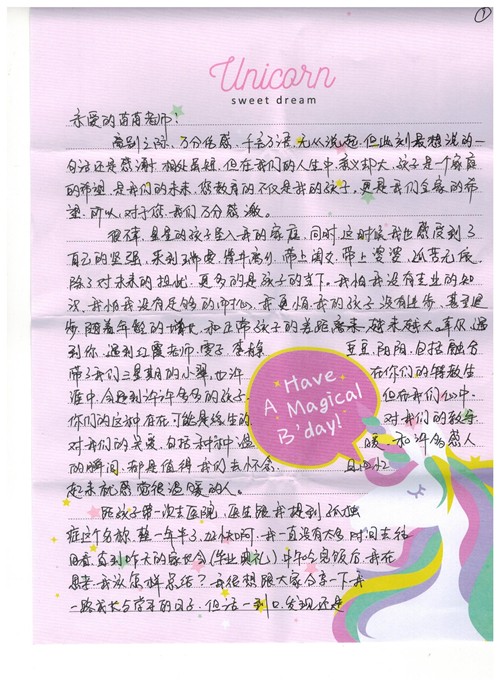 ①
Unicorn
sweet dream
亲爱的苗苗老师：
离别之际，万分伤感，千言万语，无从说起，但此刻最想说的一
句话还是感谢。相处虽短，但在我们的人生中，意义却大，孩子是一个家庭
的希望，是我们的未来，您教育的不仅是我的孩子，更是我们全家的希
望，所以，对于您，我们万分感激。
很幸，星星的孩子坠入我的家庭，同时，这时候我也感受到了
自己的坚强，来到 带上闺女，带上婆婆，孤苦无依，
除了对未来的担忧，更多的是孩子的当下。我怕我没有专业的知
识，我怕我没有足够的 我更怕，我的孩子没有进步，甚至退
步，随着年龄的增大，和正常孩子的差距 越来越大。幸只，遇
到你，遇到 老师，雯子，李静 豆豆，阳阳，包括融合
带了我们三星期的小 ，也许 在你们的特教生
涯中，会遇到许许多多的孩子， 但在我们心中，
你们的这种存在可能是终生的， 对我们的教导
对我们的关爱，包括种种温 暖，和许多感人
的瞬间，都是值得我们去怀念， 且
起来就感觉很温暖的人。
距孩子第一次去医院，医生跟我提到孤独
症这个名称，整一年半了， 快啊，我一直没有太多时间去往
回看，直到昨天的家长会（毕业典礼）中午吃完饭后，我在
思考，我该怎样总结？我很想跟大家分享一下我
一路成长与 的日子，但话一到口，发现还是
Have
A Magical
B'day!